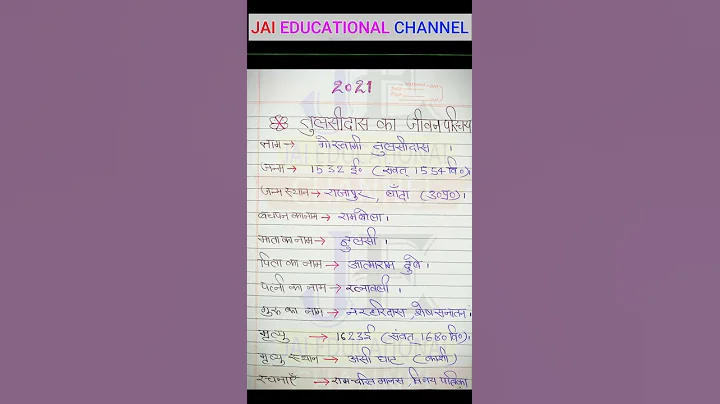 JAI EDUCATIONAL CHANNEL
2021
तुलसीदास का जीवन परिचय
नाम → गोस्वामी तुलसीदास ।
जन्म → 1532 ई० (संवत् 1554 वि०)।
जन्म स्थान → राजापुर, बाँदा (उ०प्र०)।
बचपन का नाम → रामबोला ।
माता का नाम → हुलसी ।
पिता का नाम → आत्माराम दुबे ।
पत्नी का नाम → रत्नावली ।
गुरु का नाम → नरहरिदास, शेष सनातन ।
मृत्यु → 1623ई (संवत् 1680 वि०)।
मृत्यु स्थान → असी घाट (काशी)
रचनाएँ → राम चरित मानस, विनय पत्रिका